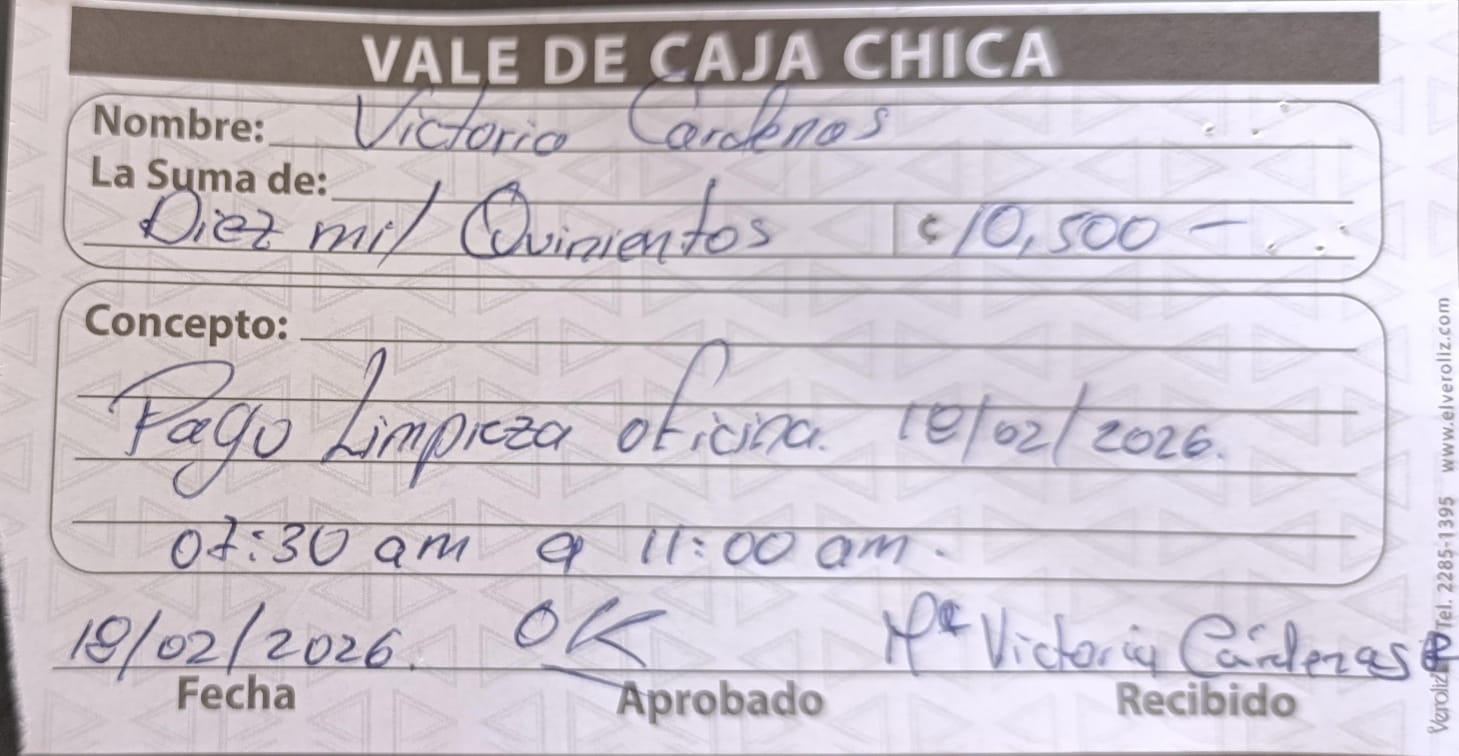 VALE DE CAJA CHICA
Nombre: Victoria Cardenas
La Suma de:
Diez mil Quinientos ¢ 10,500 —
Concepto:
Pago Limpieza oficina. 18/02/2026.
07:30 am a 11:00 am.
18/02/2026. OK Mª Victoria Cárdenas
Fecha Aprobado Recibido
Veroliz Tel. 2285-1395 www.elveroliz.com